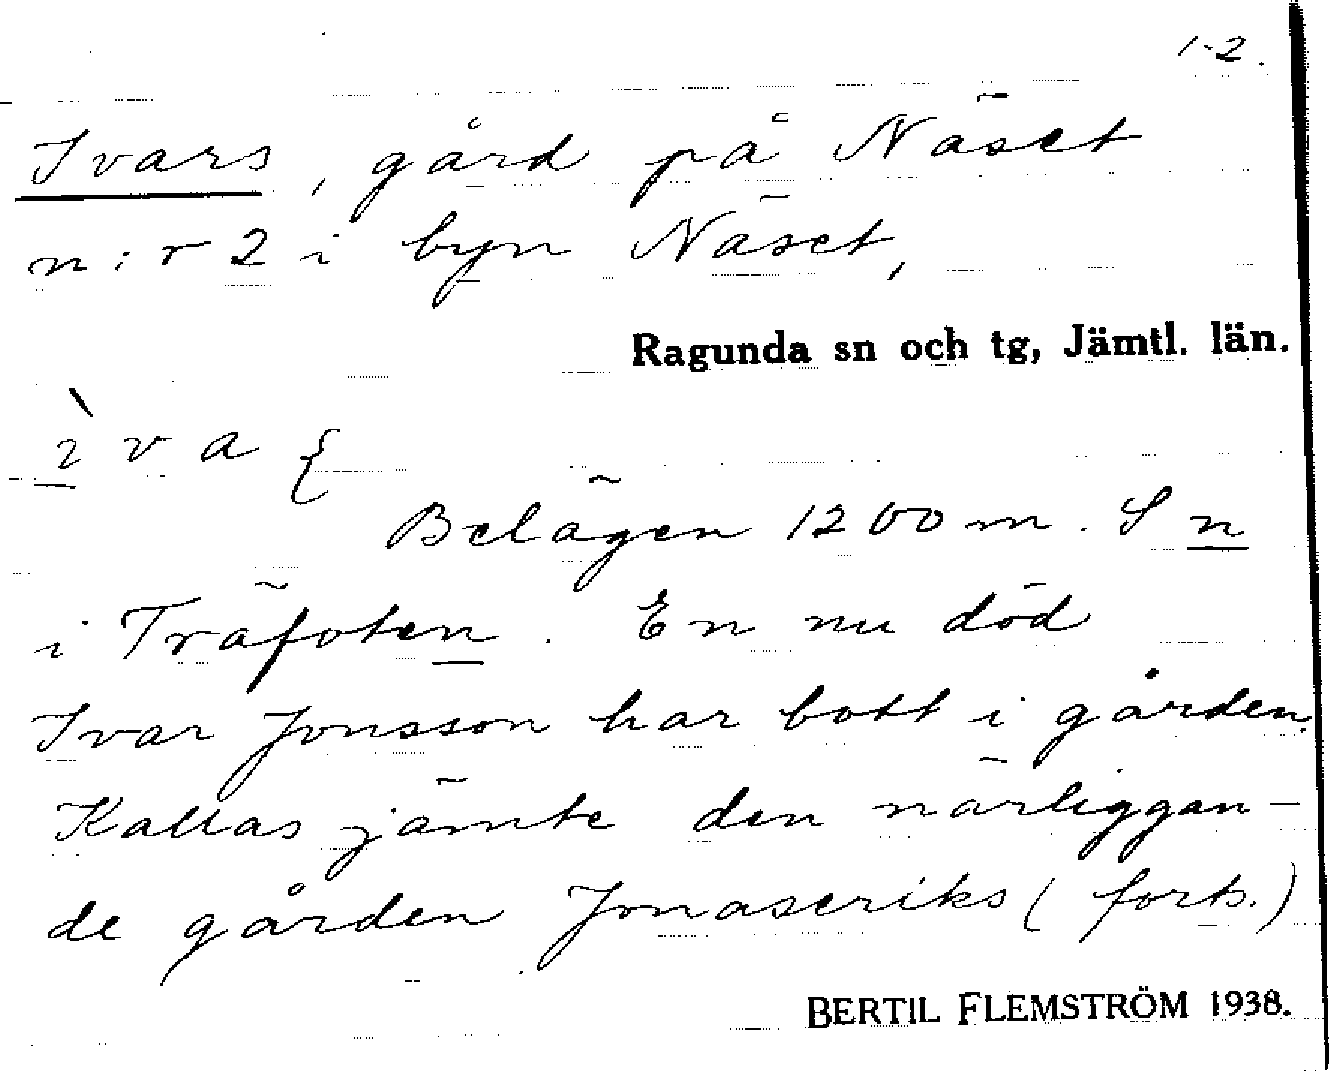 1-2.
Ivars, gård på Näset
n:r 2 i byn Näset,
Ragunda sn och tg, Jämtl. län.
ìva
Belägen 1200 m. S n
i Träfoten. En nu död
Ivar Jonsson har bott i gården.
Kallas jämte den närliggan-
de gården Jonaseriks (forts.)
BERTIL FLEMSTRÖM 1938.